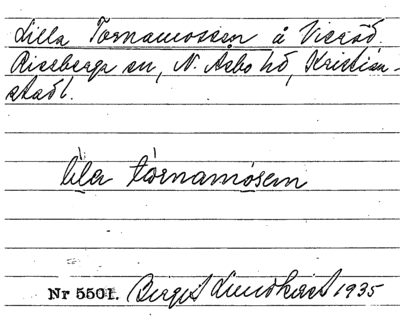 Lilla Tornamossen å Vieröd.
Riseberga sn, N. Åsbo hd, Kristian-
stads l.
lila tórnamósen
Nr 5501. Birgit Lundkvist 1935